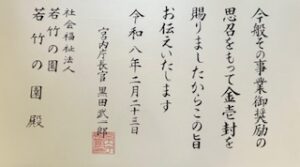 今般その事業御奨励の
思召をもって金壱封を
賜りましたからこの旨
お伝えいたします
令和八年二月二十三日
宮内庁長官 黒田武一郎
社会福祉法人
若竹の園
若竹の園 殿